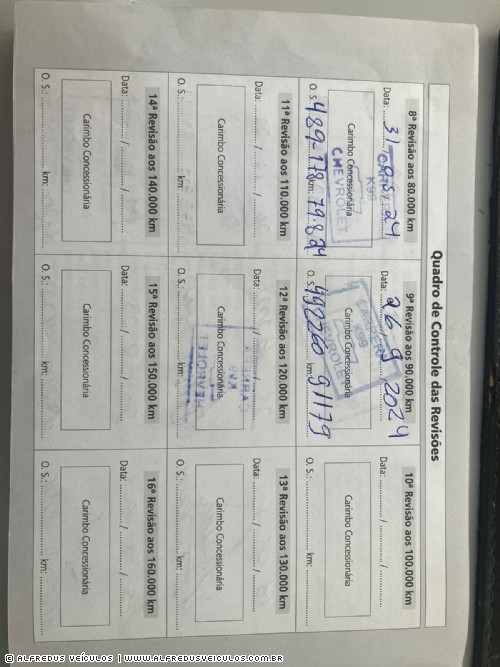 Quadro de Controle das Revisões
8ª Revisão aos 80.000 km
Data: 31 05 24
Carimbo Concessionária
CHEVROLET
O. S.: 489-178 km: 79.824
9ª Revisão aos 90.000 km
Data: 26 9 2024
Carimbo Concessionária
O. S.: 492260 km: 91179
10ª Revisão aos 100.000 km
Data: ............ / ............ / ............
Carimbo Concessionária
O. S.: .................... km: ....................
11ª Revisão aos 110.000 km
Data: ............ / ............ / ............
Carimbo Concessionária
O. S.: .................... km: ....................
12ª Revisão aos 120.000 km
Data: ............ / ............ / ............
Carimbo Concessionária
O. S.: .................... km: ....................
13ª Revisão aos 130.000 km
Data: ............ / ............ / ............
Carimbo Concessionária
O. S.: .................... km: ....................
14ª Revisão aos 140.000 km
Data: ............ / ............ / ............
Carimbo Concessionária
O. S.: .................... km: ....................
15ª Revisão aos 150.000 km
Data: ............ / ............ / ............
Carimbo Concessionária
O. S.: .................... km: ....................
16ª Revisão aos 160.000 km
Data: ............ / ............ / ............
Carimbo Concessionária
O. S.: .................... km: ....................
© ALFREDUS VEÍCULOS | WWW.ALFREDUSVEICULOS.COM.BR